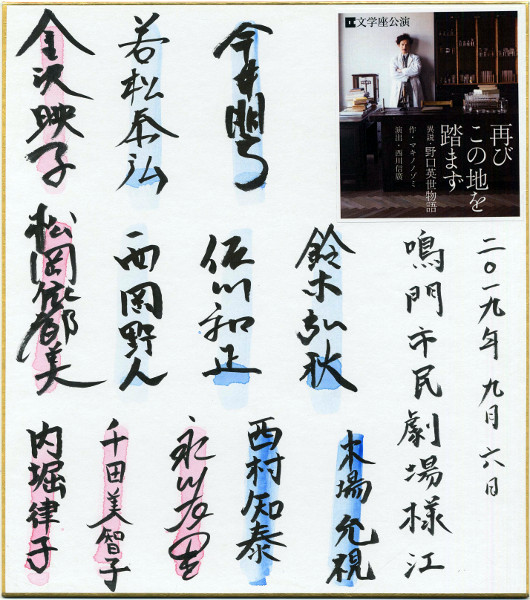 文学座公演
再び
この地を
踏まず
異説・野口英世物語
作・マキノノゾミ
演出・西川信廣
二〇一九年 九月 六日
鳴門市民劇場様江
今井朋彦
若松泰弘
金沢映子
鈴木弘秋
佐川和正
西岡野人
松岡依都美
木場允視
西村知泰
永川友里
千田美智子
内堀律子